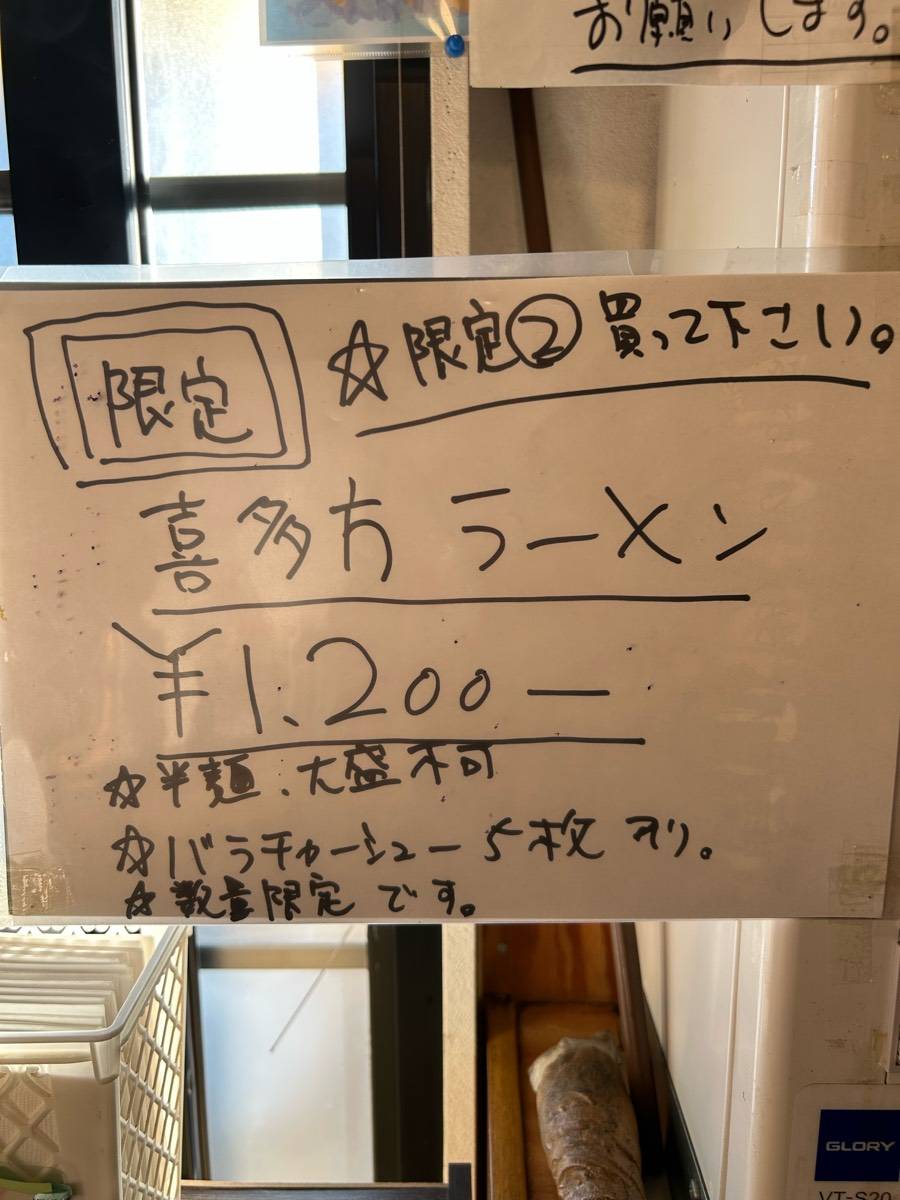 お願いします。
限定
☆限定② 買って下さい。
喜多方 ラーメン
¥1,200ー
☆半麺、大盛不可
☆バラチャーシュー5枚入り。
☆数量限定です。
GLORY
VT-S20